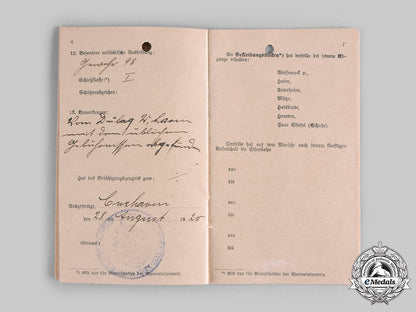 6
12. Besondere militärische Ausbildung:
Gewehr 98
Schießklasse*) I
Schützenabzeichen:
13. Bemerkungen:
Vom Dulag W'haven
mit den üblichen
Gebührnissen abgefunden
Hat das Befähigungszeugnis zum
Ausgefertigt, Cuxhaven
den 28 August 1920
(Stempel.)
*) Gilt nur für Mannschaften der Marineinfanterie.
7
An Bekleidungsstücken*) hat derselbe bei seinem Ab-
gange erhalten:
Waffenrock
Hosen,
Unterhosen,
Mütze,
Halsbinde,
Hemden,
Paar Stiefel (Schuhe);
Derselbe hat auf dem Marsche nach seinem künftigen
Aufenthalt die Eisenbahn
von
bis
von
bis
von
bis
*) Gilt nur für Mannschaften der Marineinfanterie.
eMedals